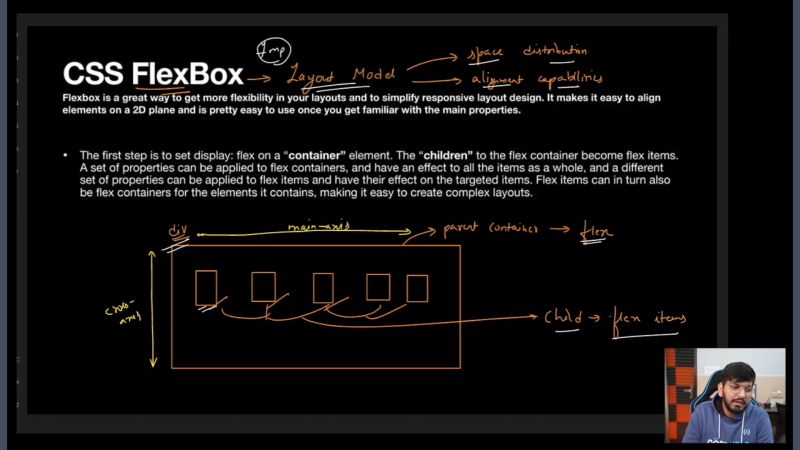 Imp
CSS FlexBox → Layout Model
space distribution
alignment capabilities
Flexbox is a great way to get more flexibility in your layouts and to simplify responsive layout design. It makes it easy to align
elements on a 2D plane and is pretty easy to use once you get familiar with the main properties.
• The first step is to set display: flex on a “container” element. The “children” to the flex container become flex items.
A set of properties can be applied to flex containers, and have an effect to all the items as a whole, and a different
set of properties can be applied to flex items and have their effect on the targeted items. Flex items can in turn also
be flex containers for the elements it contains, making it easy to create complex layouts.
div
main-axis
parent container → flex
cross-
axis
child → flex items